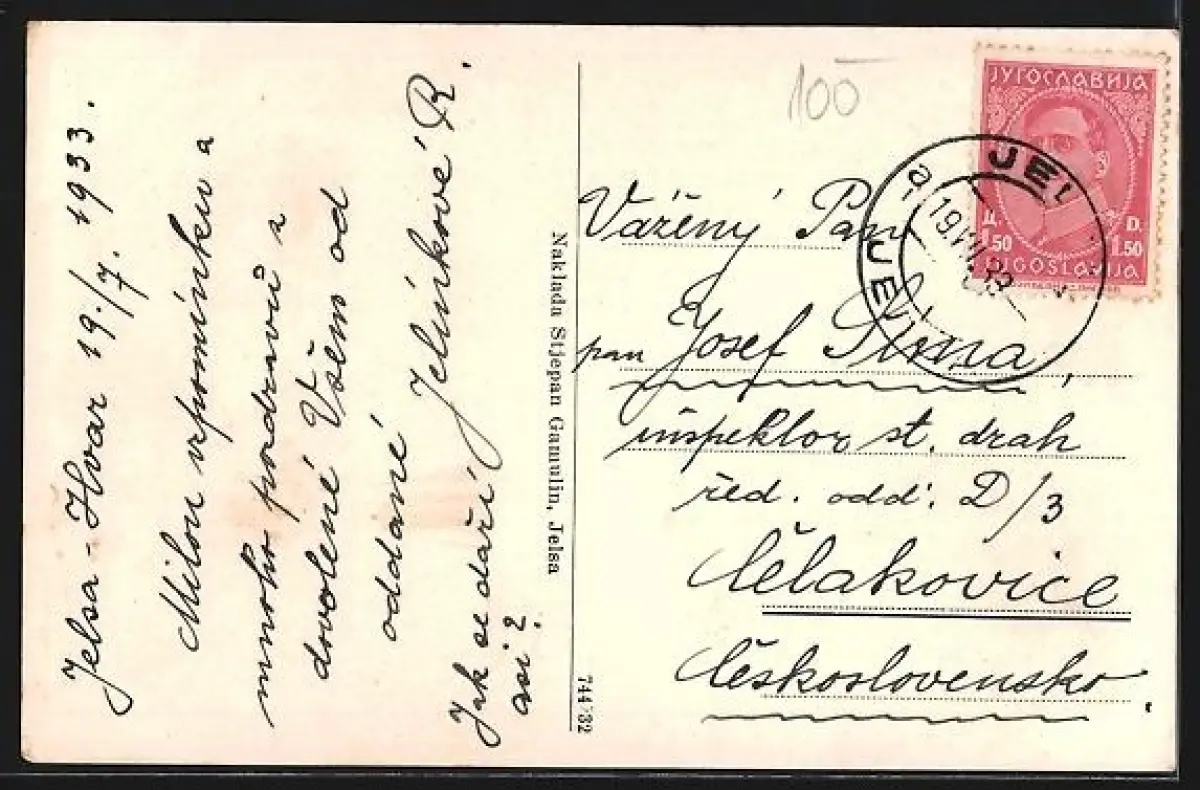 Jelsa - Hvar 19./7. 1933.
Milou vzpomínku a
mnoho pozdravů z
dovolené Všem od
oddané
Jelínkové R.
Jak se daří
asi?
Naklada Stjepan Gamulin, Jelsa
744 32
100
ЈУГОСЛАВИЈА
Д. D.
1.50 1.50
JUGOSLAVIJA
a JEL
19.VII.33
JE
Vážený Pan
pan Josef Šíma,
inspektor st. drah
řed. odd. D/3
Čelakovice
Československo.